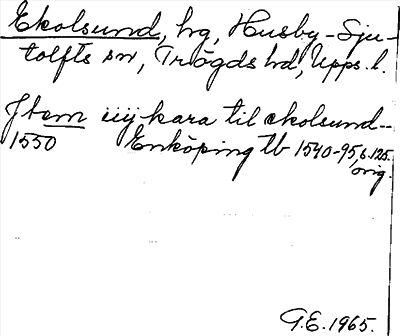 Ekolsund, hg, Husby-Sju-
tolfts sn, Trögds hd, Upps. l.
Item iiij kara til ekolsund--
1550 Enköping tb 1540-95, s. 125.
orig.
G.E. 1965.